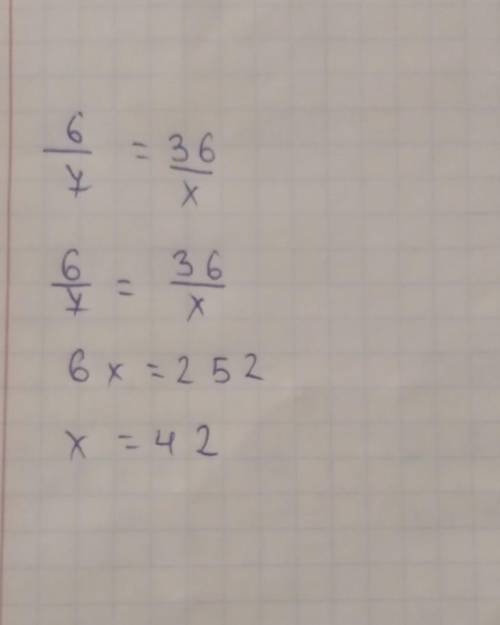 6/7 = 36/x
6/7 = 36/x
6x = 252
x = 42